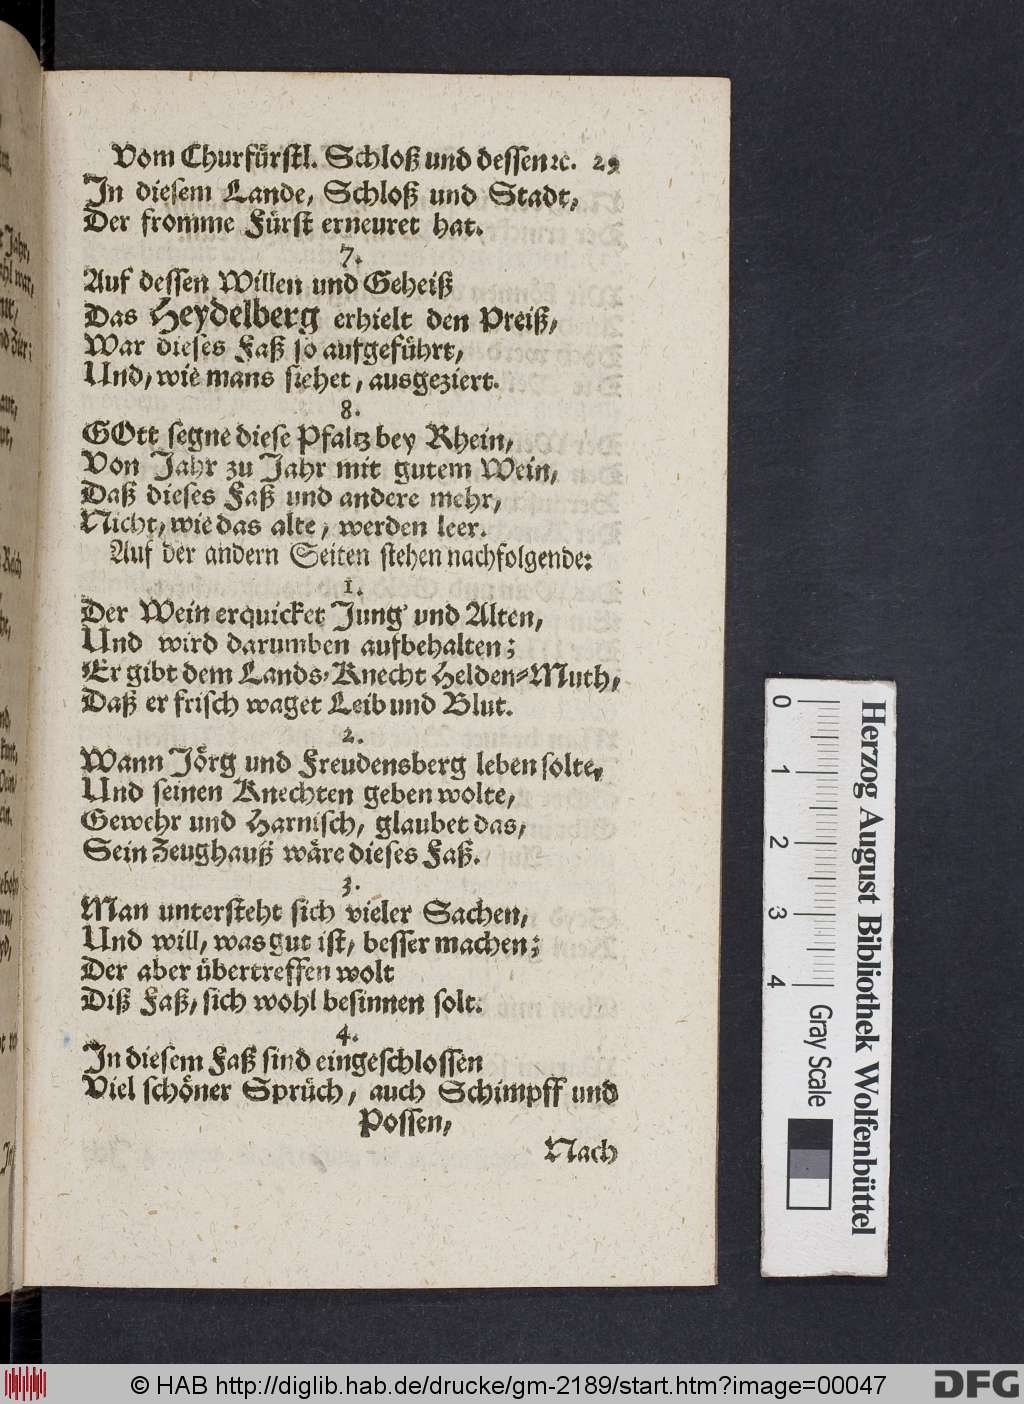 Vom Churfürstl. Schloß und dessen ꝛc. 29
In diesem Lande, Schloß und Stadt,
Der fromme Fürst erneuret hat.
7.
Auf dessen Willen und Geheiß
Das Heydelberg erhielt den Preiß,
War dieses Faß so aufgeführt,
Und, wie mans siehet, ausgeziert.
8.
GOtt segne diese Pfaltz bey Rhein,
Von Jahr zu Jahr mit gutem Wein,
Daß dieses Faß und andere mehr,
Nicht, wie das alte, werden leer.
Auf der andern Seiten stehen nachfolgende:
1.
Der Wein erquicket Jung und Alten,
Und wird darumben aufbehalten;
Er gibt dem Lands-Knecht Helden-Muth,
Daß er frisch waget Leib und Blut.
2.
Wann Jörg und Freudensberg leben solte,
Und seinen Knechten geben wolte,
Gewehr und Harnisch, glaubet das,
Sein Zeughauß wäre dieses Faß.
3.
Man untersteht sich vieler Sachen,
Und will, was gut ist, besser machen;
Der aber übertreffen wolt
Diß Faß, sich wohl besinnen solt.
4.
In diesem Faß sind eingeschlossen
Viel schöner Sprüch, auch Schimpff und
Possen,
Nach
0 1 2 3 4
Gray Scale
Herzog August Bibliothek Wolfenbüttel
© HAB http://diglib.hab.de/drucke/gm-2189/start.htm?image=00047
DFG